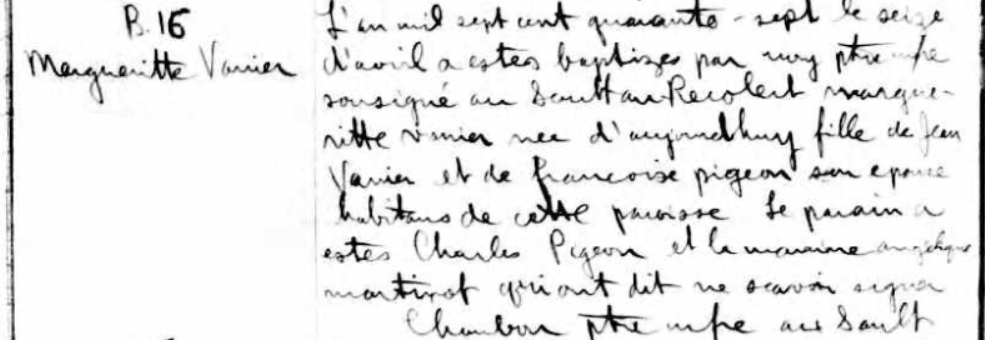 B.16
Margueritte Vanier
L'an mil sept cent quarante-sept le seize
d'avril a estes baptizes par moy ptre
sousigné au Sault au Recolect margue-
ritte vanier nee d'aujourdhuy fille de Jean
Vanier et de francoise pigeon son epouse
habitans de cette paroisse Le parain a
estes Charles Pigeon et la maraine angelique
martinot qui ont dit ne scavoir signer
Chambon ptre au Sault